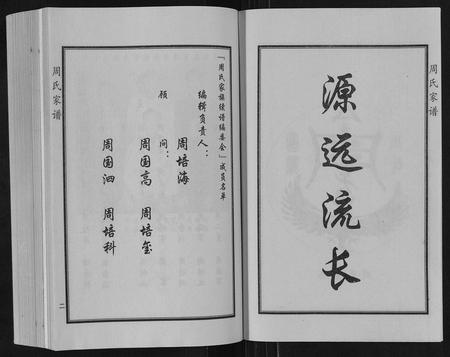 周氏家谱
源远流长
周氏家谱
「周氏家族续谱编委会」成员名单
编辑负责人：
周培海
顾问：
周国高 周培玺
周国泗 周培科
二